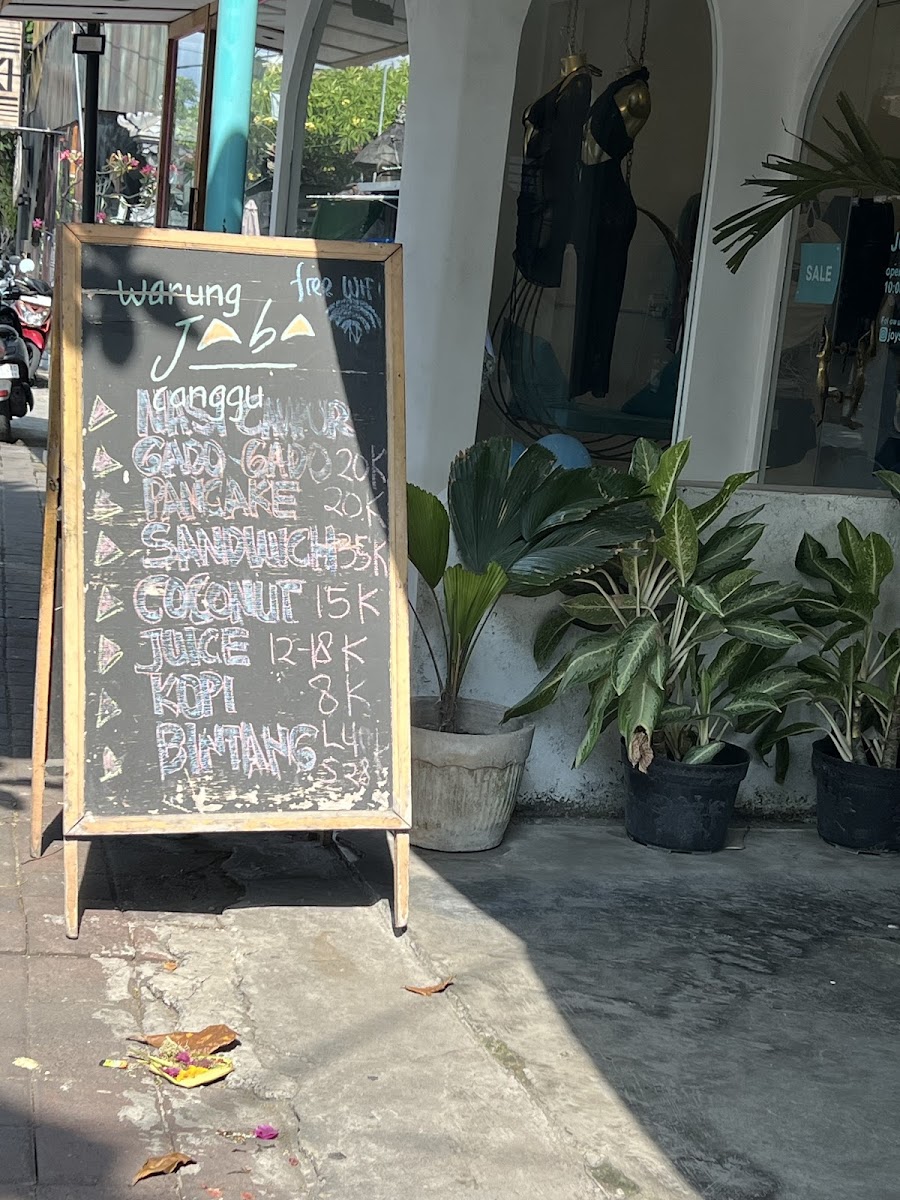 warung
free WiFi
Jaba
canggu
NASI CAMPUR
GADO-GADO 20K
PANCAKE 20K
SANDWICH 35K
COCONUT 15K
JUICE 12-18K
KOPI 8K
BINTANG L40
S28
SALE
ope
10:0